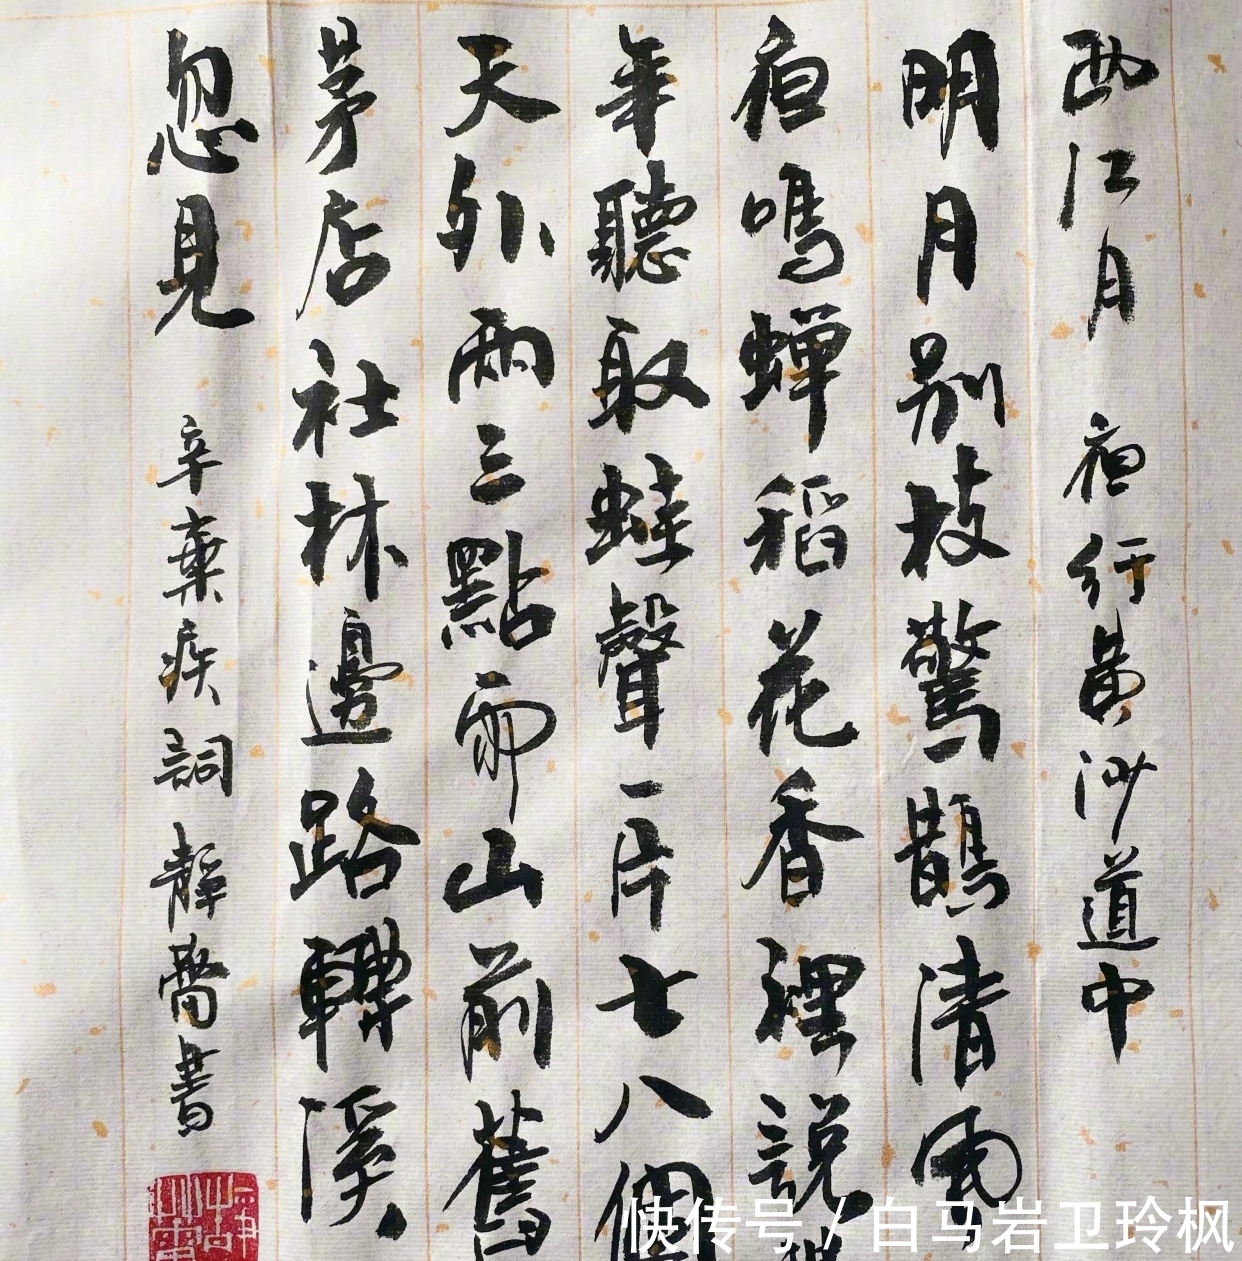 西江月 夜行黄沙道中
明月别枝驚鵲清風
夜鳴蝉稻花香裡説
年聽取蛙聲一片七八個
天外兩三點雨山前舊
茅店社林邊路轉溪
忽見 辛棄疾詞 静書
快传号/白马岩卫玲枫